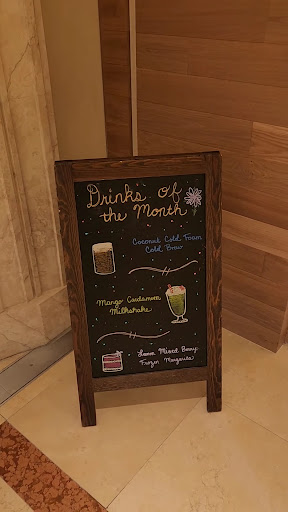 Drinks of
the Month
Coconut Cold Foam
Cold Brew
Mango
Milkshake
Mixed Berry
Frozen Margarita